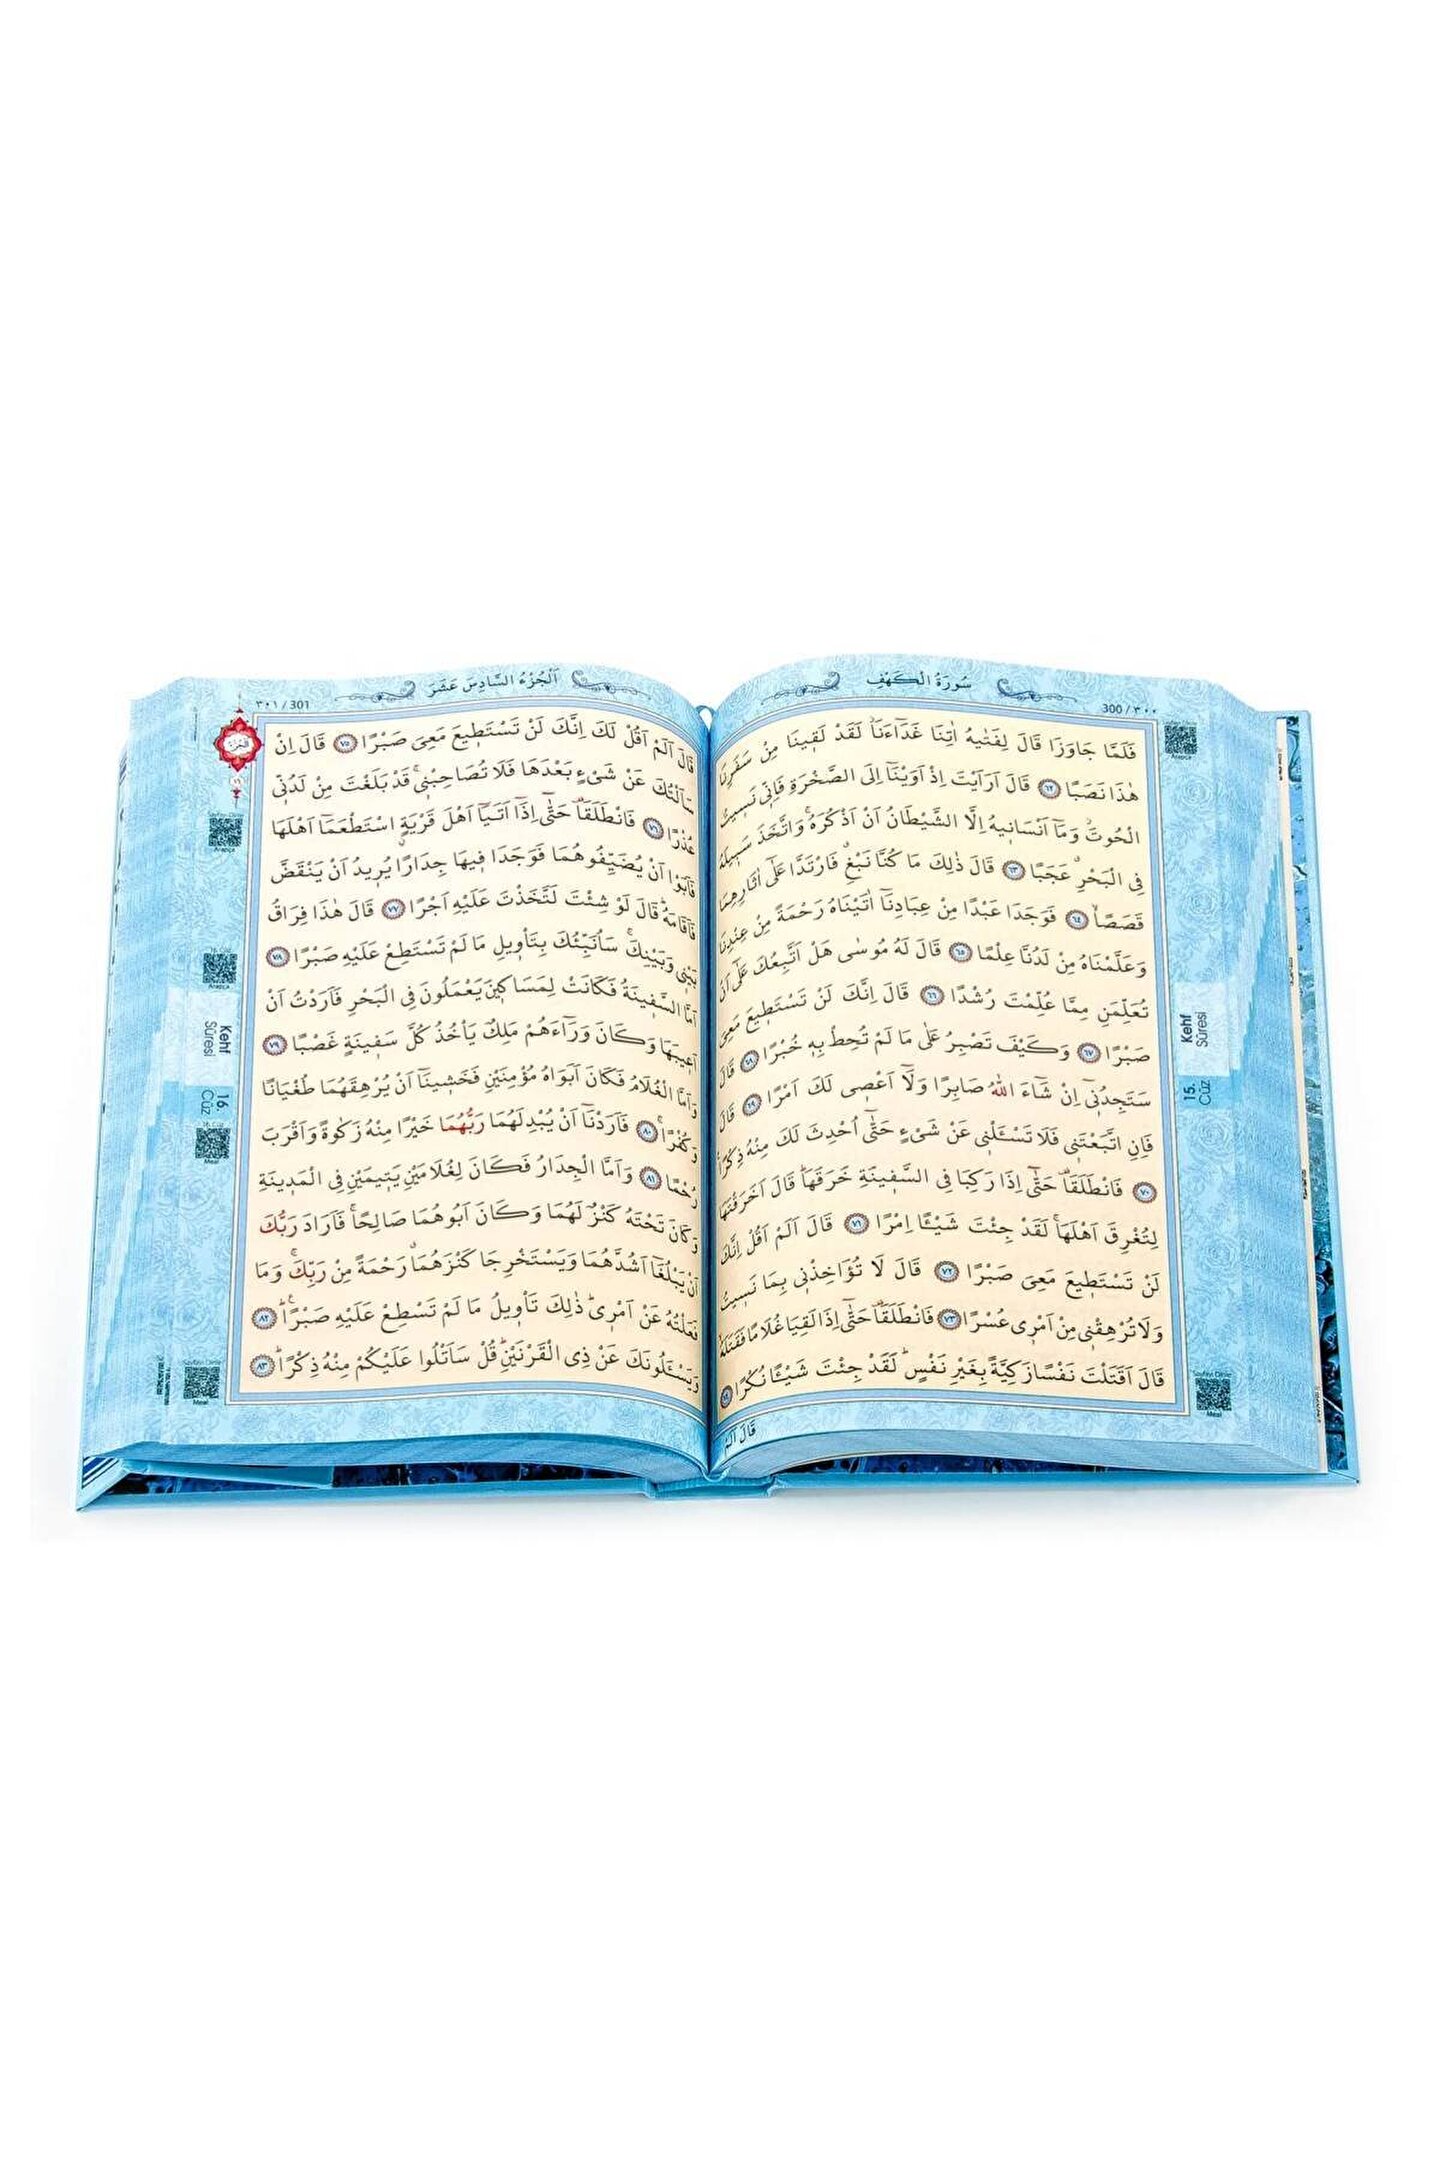 سُورَةُ الْكَهْفِ
300 / ٣٠٠
فَلَمَّا جَاوَزَا قَالَ لِفَتٰيهُ اٰتِنَا غَدَٓاءَنَاۘ لَقَدْ لَق۪ينَا مِنْ سَفَرِنَا
هٰذَا نَصَبًا ﴿٦٢﴾ قَالَ اَرَاَيْتَ اِذْ اَوَيْنَٓا اِلَى الصَّخْرَةِ فَاِنّ۪ي نَس۪يتُ
الْحُوتَۘ وَمَٓا اَنْسَان۪يهُ اِلَّا الشَّيْطَانُ اَنْ اَذْكُرَهُۚ وَاتَّخَذَ سَب۪يلَهُ
فِي الْبَحْرِۗ عَجَبًا ﴿٦٣﴾ قَالَ ذٰلِكَ مَا كُنَّا نَبْغِۗ فَارْتَدَّا عَلٰٓى اٰثَارِهِمَا
قَصَصًاۙ ﴿٦٤﴾ فَوَجَدَا عَبْدًا مِنْ عِبَادِنَٓا اٰتَيْنَاهُ رَحْمَةً مِنْ عِنْدِنَا
وَعَلَّمْنَاهُ مِنْ لَدُنَّا عِلْمًا ﴿٦٥﴾ قَالَ لَهُ مُوسٰى هَلْ اَتَّبِعُكَ عَلٰٓى اَنْ
تُعَلِّمَنِ مِمَّا عُلِّمْتَ رُشْدًا ﴿٦٦﴾ قَالَ اِنَّكَ لَنْ تَسْتَط۪يعَ مَعِيَ
صَبْرًا ﴿٦٧﴾ وَكَيْفَ تَصْبِرُ عَلٰى مَا لَمْ تُحِطْ بِه۪ خُبْرًا ﴿٦٨﴾ قَالَ
سَتَجِدُن۪ٓي اِنْ شَٓاءَ اللّٰهُ صَابِرًا وَلَٓا اَعْص۪ي لَكَ اَمْرًا ﴿٦٩﴾ قَالَ
فَاِنِ اتَّبَعْتَن۪ي فَلَا تَسْـَٔلْن۪ي عَنْ شَيْءٍ حَتّٰٓى اُحْدِثَ لَكَ مِنْهُ ذِكْرًا
﴿٧٠﴾ فَانْطَلَقَا۠ حَتّٰٓى اِذَا رَكِبَا فِي السَّف۪ينَةِ خَرَقَهَاۜ قَالَ اَخَرَقْتَهَا
لِتُغْرِقَ اَهْلَهَاۚ لَقَدْ جِئْتَ شَيْـًٔا اِمْرًا ﴿٧١﴾ قَالَ اَلَمْ اَقُلْ اِنَّكَ
لَنْ تَسْتَط۪يعَ مَعِيَ صَبْرًا ﴿٧٢﴾ قَالَ لَا تُؤَاخِذْن۪ي بِمَا نَس۪يتُ
وَلَا تُرْهِقْن۪ي مِنْ اَمْر۪ي عُسْرًا ﴿٧٣﴾ فَانْطَلَقَا۠ حَتّٰٓى اِذَا لَقِيَا غُلَامًا فَقَتَلَهُۙ
قَالَ اَقَتَلْتَ نَفْسًا زَكِيَّةً بِغَيْرِ نَفْسٍۜ لَقَدْ جِئْتَ شَيْـًٔا نُكْرًا ﴿٧٤﴾
قَالَ اَلَمْ
Arapça
Kehf
Sûresi
15.
Cüz
Meal
اَلْجُزْءُ السَّادِسَ عَشَرَ
٣٠١ / 301
قَالَ اَلَمْ اَقُلْ لَكَ اِنَّكَ لَنْ تَسْتَط۪يعَ مَعِيَ صَبْرًا ﴿٧٥﴾ قَالَ اِنْ
سَاَلْتُكَ عَنْ شَيْءٍ بَعْدَهَا فَلَا تُصَاحِبْن۪يۚ قَدْ بَلَغْتَ مِنْ لَدُنّ۪ي
عُذْرًا ﴿٧٦﴾ فَانْطَلَقَا۠ حَتّٰٓى اِذَٓا اَتَيَٓا اَهْلَ قَرْيَةٍۨ اسْتَطْعَمَٓا اَهْلَهَا
فَاَبَوْا اَنْ يُضَيِّفُوهُمَا فَوَجَدَا ف۪يهَا جِدَارًا يُر۪يدُ اَنْ يَنْقَضَّ
فَاَقَامَهُۜ قَالَ لَوْ شِئْتَ لَتَّخَذْتَ عَلَيْهِ اَجْرًا ﴿٧٧﴾ قَالَ هٰذَا فِرَاقُ
بَيْن۪ي وَبَيْنِكَۚ سَاُنَبِّئُكَ بِتَأْو۪يلِ مَا لَمْ تَسْتَطِعْ عَلَيْهِ صَبْرًا ﴿٧٨﴾
اَمَّا السَّف۪ينَةُ فَكَانَتْ لِمَسَاك۪ينَ يَعْمَلُونَ فِي الْبَحْرِ فَاَرَدْتُ اَنْ
اَع۪يبَهَا وَكَانَ وَرَٓاءَهُمْ مَلِكٌ يَأْخُذُ كُلَّ سَف۪ينَةٍ غَصْبًا ﴿٧٩﴾
وَاَمَّا الْغُلَامُ فَكَانَ اَبَوَاهُ مُؤْمِنَيْنِ فَخَش۪ينَٓا اَنْ يُرْهِقَهُمَا طُغْيَانًا
وَكُفْرًاۚ ﴿٨٠﴾ فَاَرَدْنَٓا اَنْ يُبْدِلَهُمَا رَبُّهُمَا خَيْرًا مِنْهُ زَكٰوةً وَاَقْرَبَ
رُحْمًا ﴿٨١﴾ وَاَمَّا الْجِدَارُ فَكَانَ لِغُلَامَيْنِ يَت۪يمَيْنِ فِي الْمَد۪ينَةِ
وَكَانَ تَحْتَهُ كَنْزٌ لَهُمَا وَكَانَ اَبُوهُمَا صَالِحًاۚ فَاَرَادَ رَبُّكَ
اَنْ يَبْلُغَٓا اَشُدَّهُمَا وَيَسْتَخْرِجَا كَنْزَهُمَاۗ رَحْمَةً مِنْ رَبِّكَۚ وَمَا
فَعَلْتُهُ عَنْ اَمْر۪يۜ ذٰلِكَ تَأْو۪يلُ مَا لَمْ تَسْطِعْ عَلَيْهِ صَبْرًاۜ۟ ﴿٨٢﴾
وَيَسْـَٔلُونَكَ عَنْ ذِي الْقَرْنَيْنِۜ قُلْ سَاَتْلُوا عَلَيْكُمْ مِنْهُ ذِكْرًاۜ ﴿٨٣﴾
Arapça
Arapça
Kehf
Sûresi
16.
Cüz
Meal
Meal